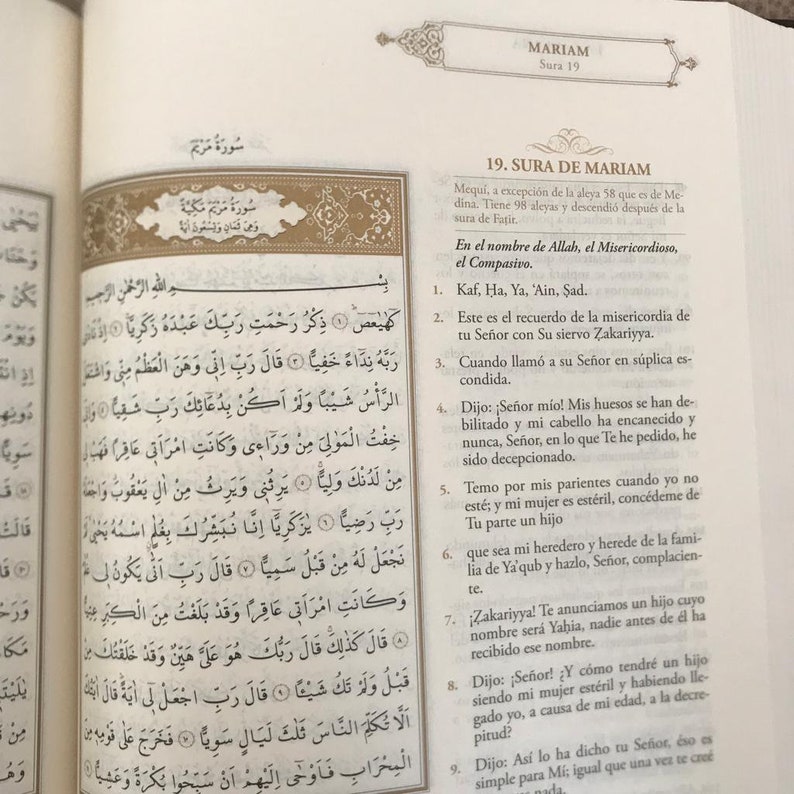 MARIAM
Sura 19
سُورَةُ مَرْيَمَ
سُورَةُ مَرْيَمَ مَكِّيَّةٌ
وَهِيَ ثَمَانٍ وَتِسْعُونَ اٰيَةً
بِسْمِ اللّٰهِ الرَّحْمٰنِ الرَّحِيمِ
كٓهٰيٰعٓصٓ ﴿١﴾ ذِكْرُ رَحْمَتِ رَبِّكَ عَبْدَهُ زَكَرِيَّاۚ ﴿٢﴾ اِذْ نَادٰى
رَبَّهُ نِدَٓاءً خَفِيًّا ﴿٣﴾ قَالَ رَبِّ اِنّ۪ي وَهَنَ الْعَظْمُ مِنّ۪ي وَاشْتَعَلَ
الرَّأْسُ شَيْبًا وَلَمْ اَكُنْ بِدُعَٓائِكَ رَبِّ شَقِيًّا ﴿٤﴾ وَاِنّ۪ي
خِفْتُ الْمَوَالِيَ مِنْ وَرَٓاء۪ي وَكَانَتِ امْرَاَت۪ي عَاقِرًا فَهَبْ ل۪ي
مِنْ لَدُنْكَ وَلِيًّاۙ ﴿٥﴾ يَرِثُن۪ي وَيَرِثُ مِنْ اٰلِ يَعْقُوبَۗ وَاجْعَلْهُ
رَبِّ رَضِيًّا ﴿٦﴾ يَا زَكَرِيَّٓا اِنَّا نُبَشِّرُكَ بِغُلَامٍۨ اسْمُهُ يَحْيٰىۙ لَمْ
نَجْعَلْ لَهُ مِنْ قَبْلُ سَمِيًّا ﴿٧﴾ قَالَ رَبِّ اَنّٰى يَكُونُ ل۪ي غُلَامٌ
وَكَانَتِ امْرَاَت۪ي عَاقِرًا وَقَدْ بَلَغْتُ مِنَ الْكِبَرِ عِتِيًّا
﴿٨﴾ قَالَ كَذٰلِكَۚ قَالَ رَبُّكَ هُوَ عَلَيَّ هَيِّنٌ وَقَدْ خَلَقْتُكَ مِنْ
قَبْلُ وَلَمْ تَكُ شَيْـًٔا ﴿٩﴾ قَالَ رَبِّ اجْعَلْ ل۪ٓي اٰيَةًۜ قَالَ اٰيَتُكَ
اَلَّا تُكَلِّمَ النَّاسَ ثَلٰثَ لَيَالٍ سَوِيًّا ﴿١٠﴾ فَخَرَجَ عَلٰى قَوْمِه۪ مِنَ
الْمِحْرَابِ فَاَوْحٰٓى اِلَيْهِمْ اَنْ سَبِّحُوا بُكْرَةً وَعَشِيًّا ﴿١١﴾
19. SURA DE MARIAM
Mequí, a excepción de la aleya 58 que es de Me-
dina. Tiene 98 aleyas y descendió después de la
sura de Faṭir.
En el nombre de Allah, el Misericordioso,
el Compasivo.
1. Kaf, Ḥa, Ya, ‘Ain, Ṣad.
2. Este es el recuerdo de la misericordia de
tu Señor con Su siervo Ẓakariyya.
3. Cuando llamó a su Señor en súplica es-
condida.
4. Dijo: ¡Señor mío! Mis huesos se han de-
bilitado y mi cabello ha encanecido y
nunca, Señor, en lo que Te he pedido, he
sido decepcionado.
5. Temo por mis parientes cuando yo no
esté; y mi mujer es estéril, concédeme de
Tu parte un hijo
6. que sea mi heredero y herede de la fami-
lia de Ya’qub y hazlo, Señor, complacien-
te.
7. ¡Ẓakariyya! Te anunciamos un hijo cuyo
nombre será Yaḥia, nadie antes de él ha
recibido ese nombre.
8. Dijo: ¡Señor! ¿Y cómo tendré un hijo
siendo mi mujer estéril y habiendo lle-
gado yo, a causa de mi edad, a la decre-
pitud?
9. Dijo: Así lo ha dicho tu Señor, éso es
simple para Mí; igual que una vez te creé
nada.